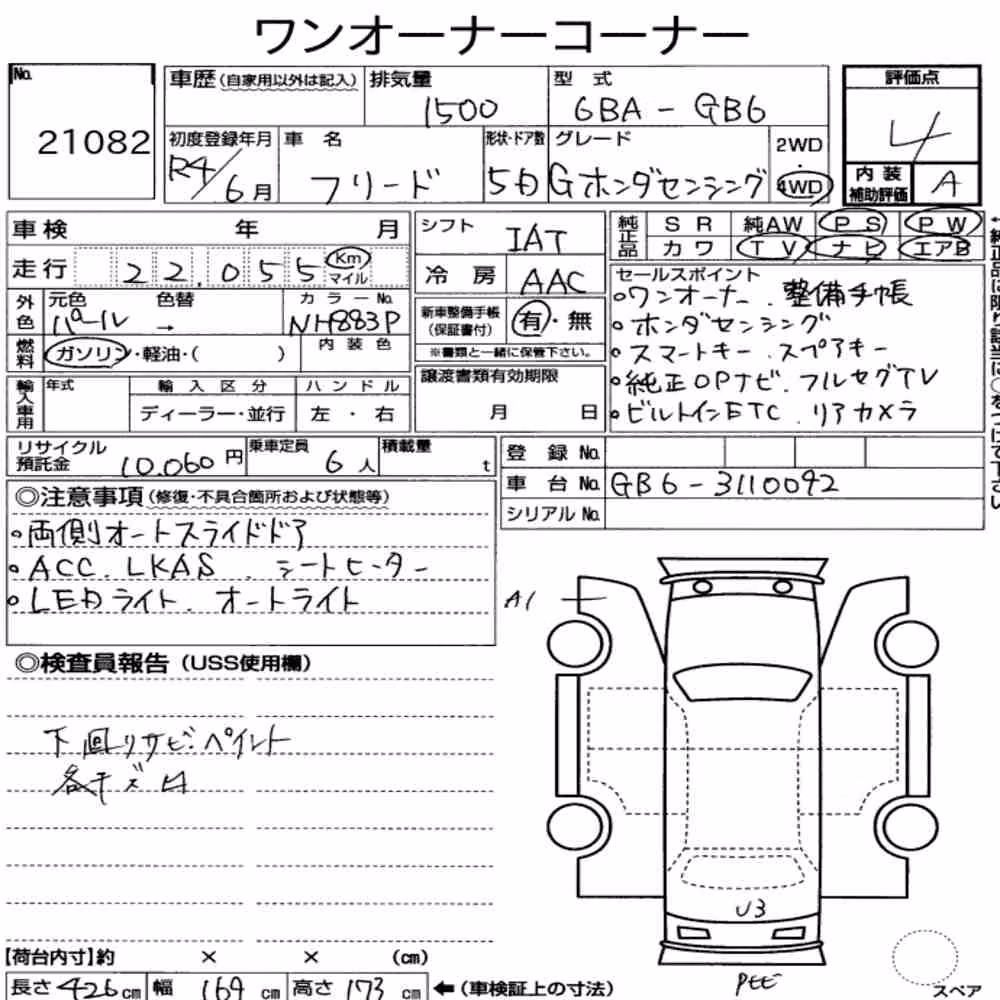 ワンオーナーコーナー
No.
21082
車歴(自家用以外は記入)
排気量
1500
型 式
6BA - GB6
評価点
4
内装補助評価
A
初度登録年月
R4/6月
車 名
フリード
形状・ドア数
5D
グレード
Gホンダセンシング
2WD
・
4WD
車検 年 月
走行 22,055 Km マイル
外色
元色 パール
色替 →
カラーNo. NH883P
燃料
ガソリン・軽油・( )
内装色
輸入車用
年式
輸入区分
ディーラー・並行
ハンドル
左 ・ 右
シフト
IAT
冷 房
AAC
新車整備手帳(保証書付)
有・無
※書類と一緒に保管下さい。
譲渡書類有効期限
月 日
純正品
SR 純AW PS PW
カワ TV ナビ エアB
セールスポイント
○ワンオーナー.整備手帳
○ホンダセンシング
○スマートキー.スペアキー
○純正OPナビ.フルセグTV
○ビルトインETC.リアカメラ
リサイクル預託金 10,060円
乗車定員 6人
積載量 t
登録No.
車台No. GB6-3110092
シリアルNo.
◎注意事項(修復・不具合箇所および状態等)
○両側オートスライドドア
○ACC.LKAS.シートヒーター
○LEDライト.オートライト
◎検査員報告(USS使用欄)
下回りサビ.ペイント
各キズ凹
A1
U3
スペア
【荷台内寸】約 × × (cm)
長さ426cm 幅169cm 高さ173cm ←(車検証上の寸法)